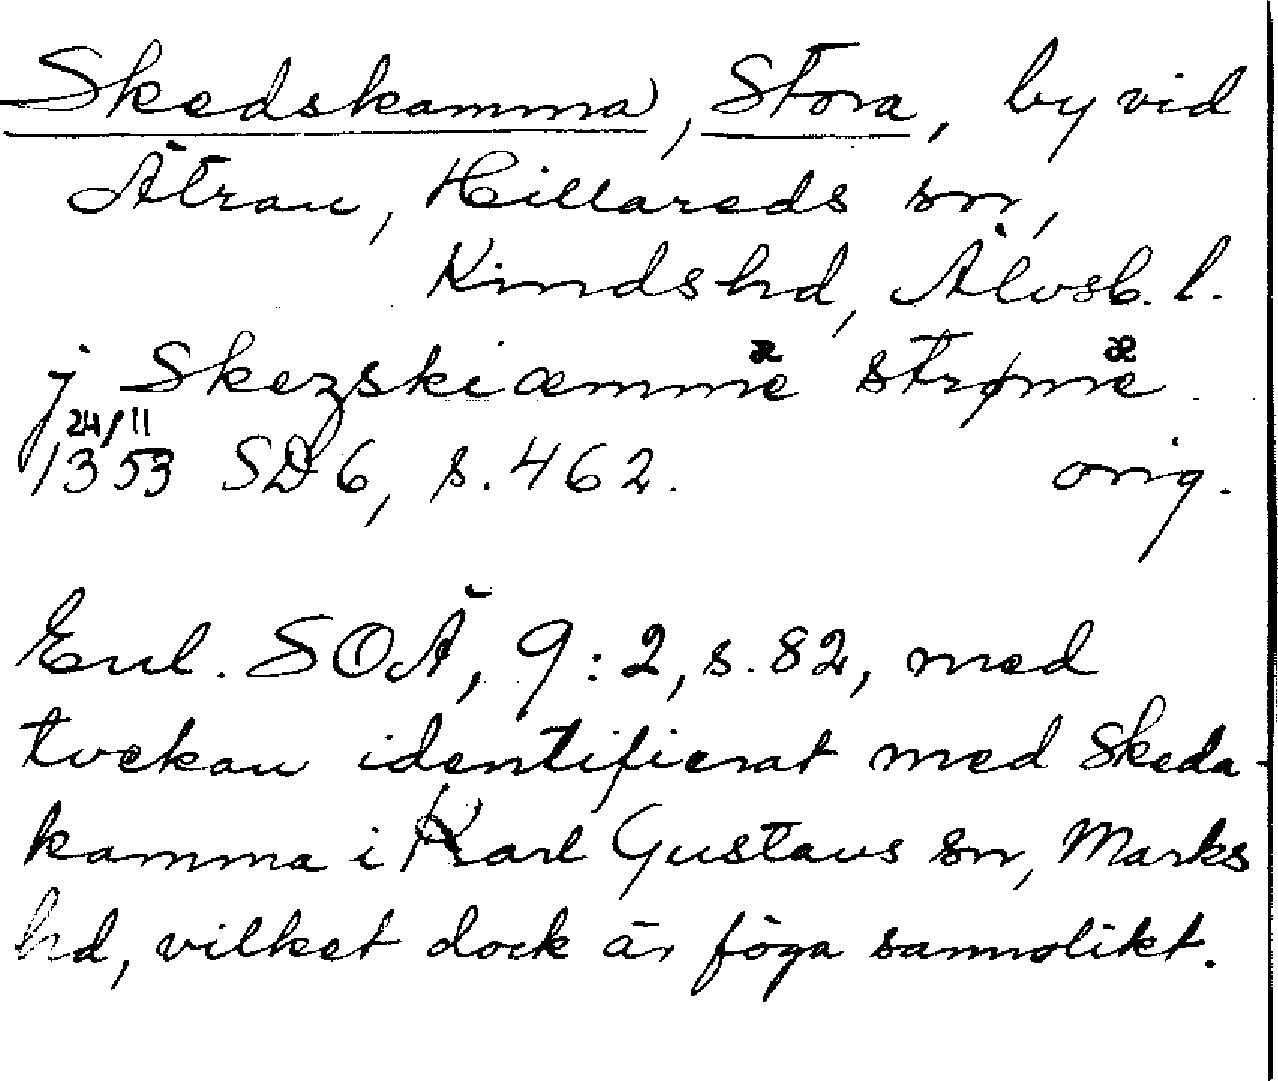 Skedskamma, Stora, by vid
Ätran, Hillareds sn,
Kinds hd, Älvsb. l.
j Skezskiæmmæ strømæ
24/11
1353 SD 6, s. 462. orig.
Enl. SOÄ, 9:2, s. 82, med
tvekan identifierat med Skeda-
kamma i Karl Gustavs sn, Marks
hd, vilket dock är föga sannolikt.